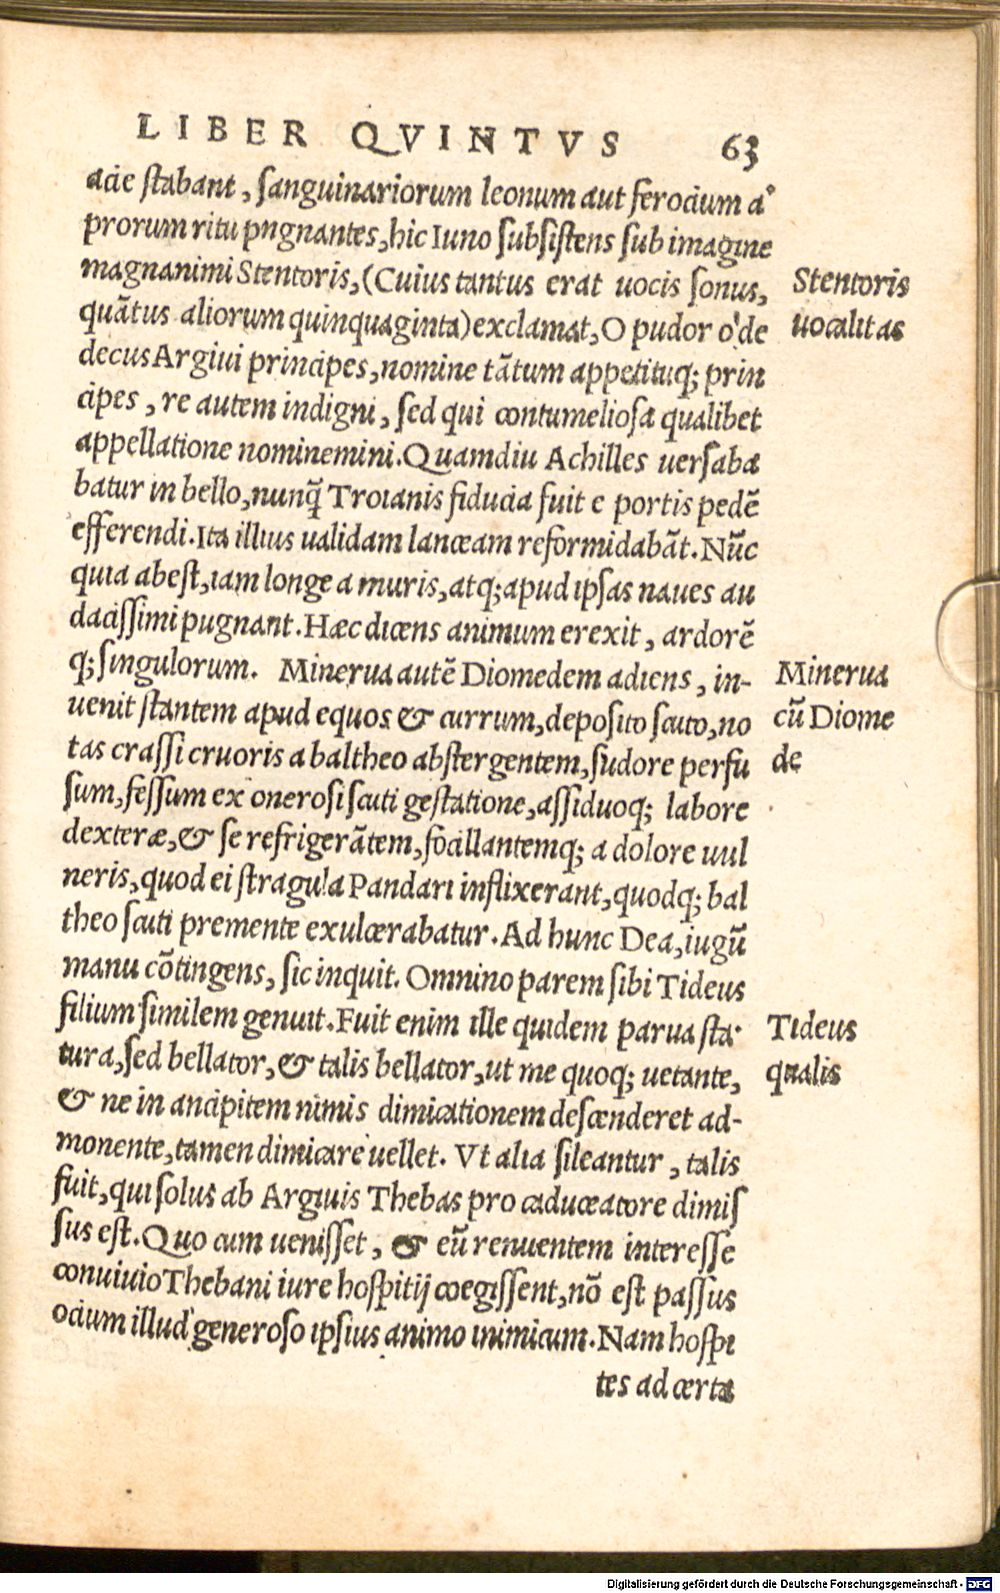 LIBER QVINTVS 63
acie ſtabant, ſanguinariorum leonum aut ferocium a
prorum ritu pngnantes, hic Iuno ſubſiſtens ſub imagine
magnanimi Stentoris, (Cuius tantus erat uocis ſonus,
quātus aliorum quinquaginta) exclamat, O pudor o' de
decus Argiui principes, nomine tātum appetituq; prin
cipes, re autem indigni, ſed qui contumelioſa qualibet
appellatione nominemini. Quamdiu Achilles uerſaba
batur in bello, nunq̃ Troianis fiducia fuit e portis pedē
efferendi. Ita illius ualidam lanceam reformidabāt. Nūc
quia abeſt, iam longe a muris, atq; apud ipſas naues au
daciſſimi pugnant. Hæc dicens animum erexit, ardorē
q; ſingulorum. Minerua autē Diomedem adiens, in-
uenit ſtantem apud equos & currum, depoſito ſcuto, no
tas craſſi cruoris a baltheo abſtergentem, ſudore perfu
ſum, feſſum ex oneroſi ſcuti geſtatione, aſſiduoq; labore
dexteræ, & ſe refrigerātem, focillantemq; a dolore uul
neris, quod ei ſtragula Pandari inflixerant, quodq; bal
theo ſcuti premente exulcerabatur. Ad hunc Dea, iugū
manu cōtingens, ſic inquit. Omnino parem ſibi Tideus
filium ſimilem genuit. Fuit enim ille quidem parua ſta-
tura, ſed bellator, & talis bellator, ut me quoq; uetante,
& ne in ancipitem nimis dimicationem deſcenderet ad-
monente, tamen dimicare uellet. Vt alia ſileantur, talis
fuit, qui ſolus ab Argiuis Thebas pro caduceatore dimiſ
ſus eſt. Quo cum ueniſſet, & eū renuentem intereſſe
conuiuio Thebani iure hoſpitij coegiſſent, nō eſt paſſus
ocium illud generoſo ipſius animo inimicum. Nam hoſpi
tes ad certa
Stentoris
uocalitas
Minerua
cū Diome
de
Tideus
qualis
Digitalisierung gefördert durch die Deutsche Forschungsgemeinschaft - DFG